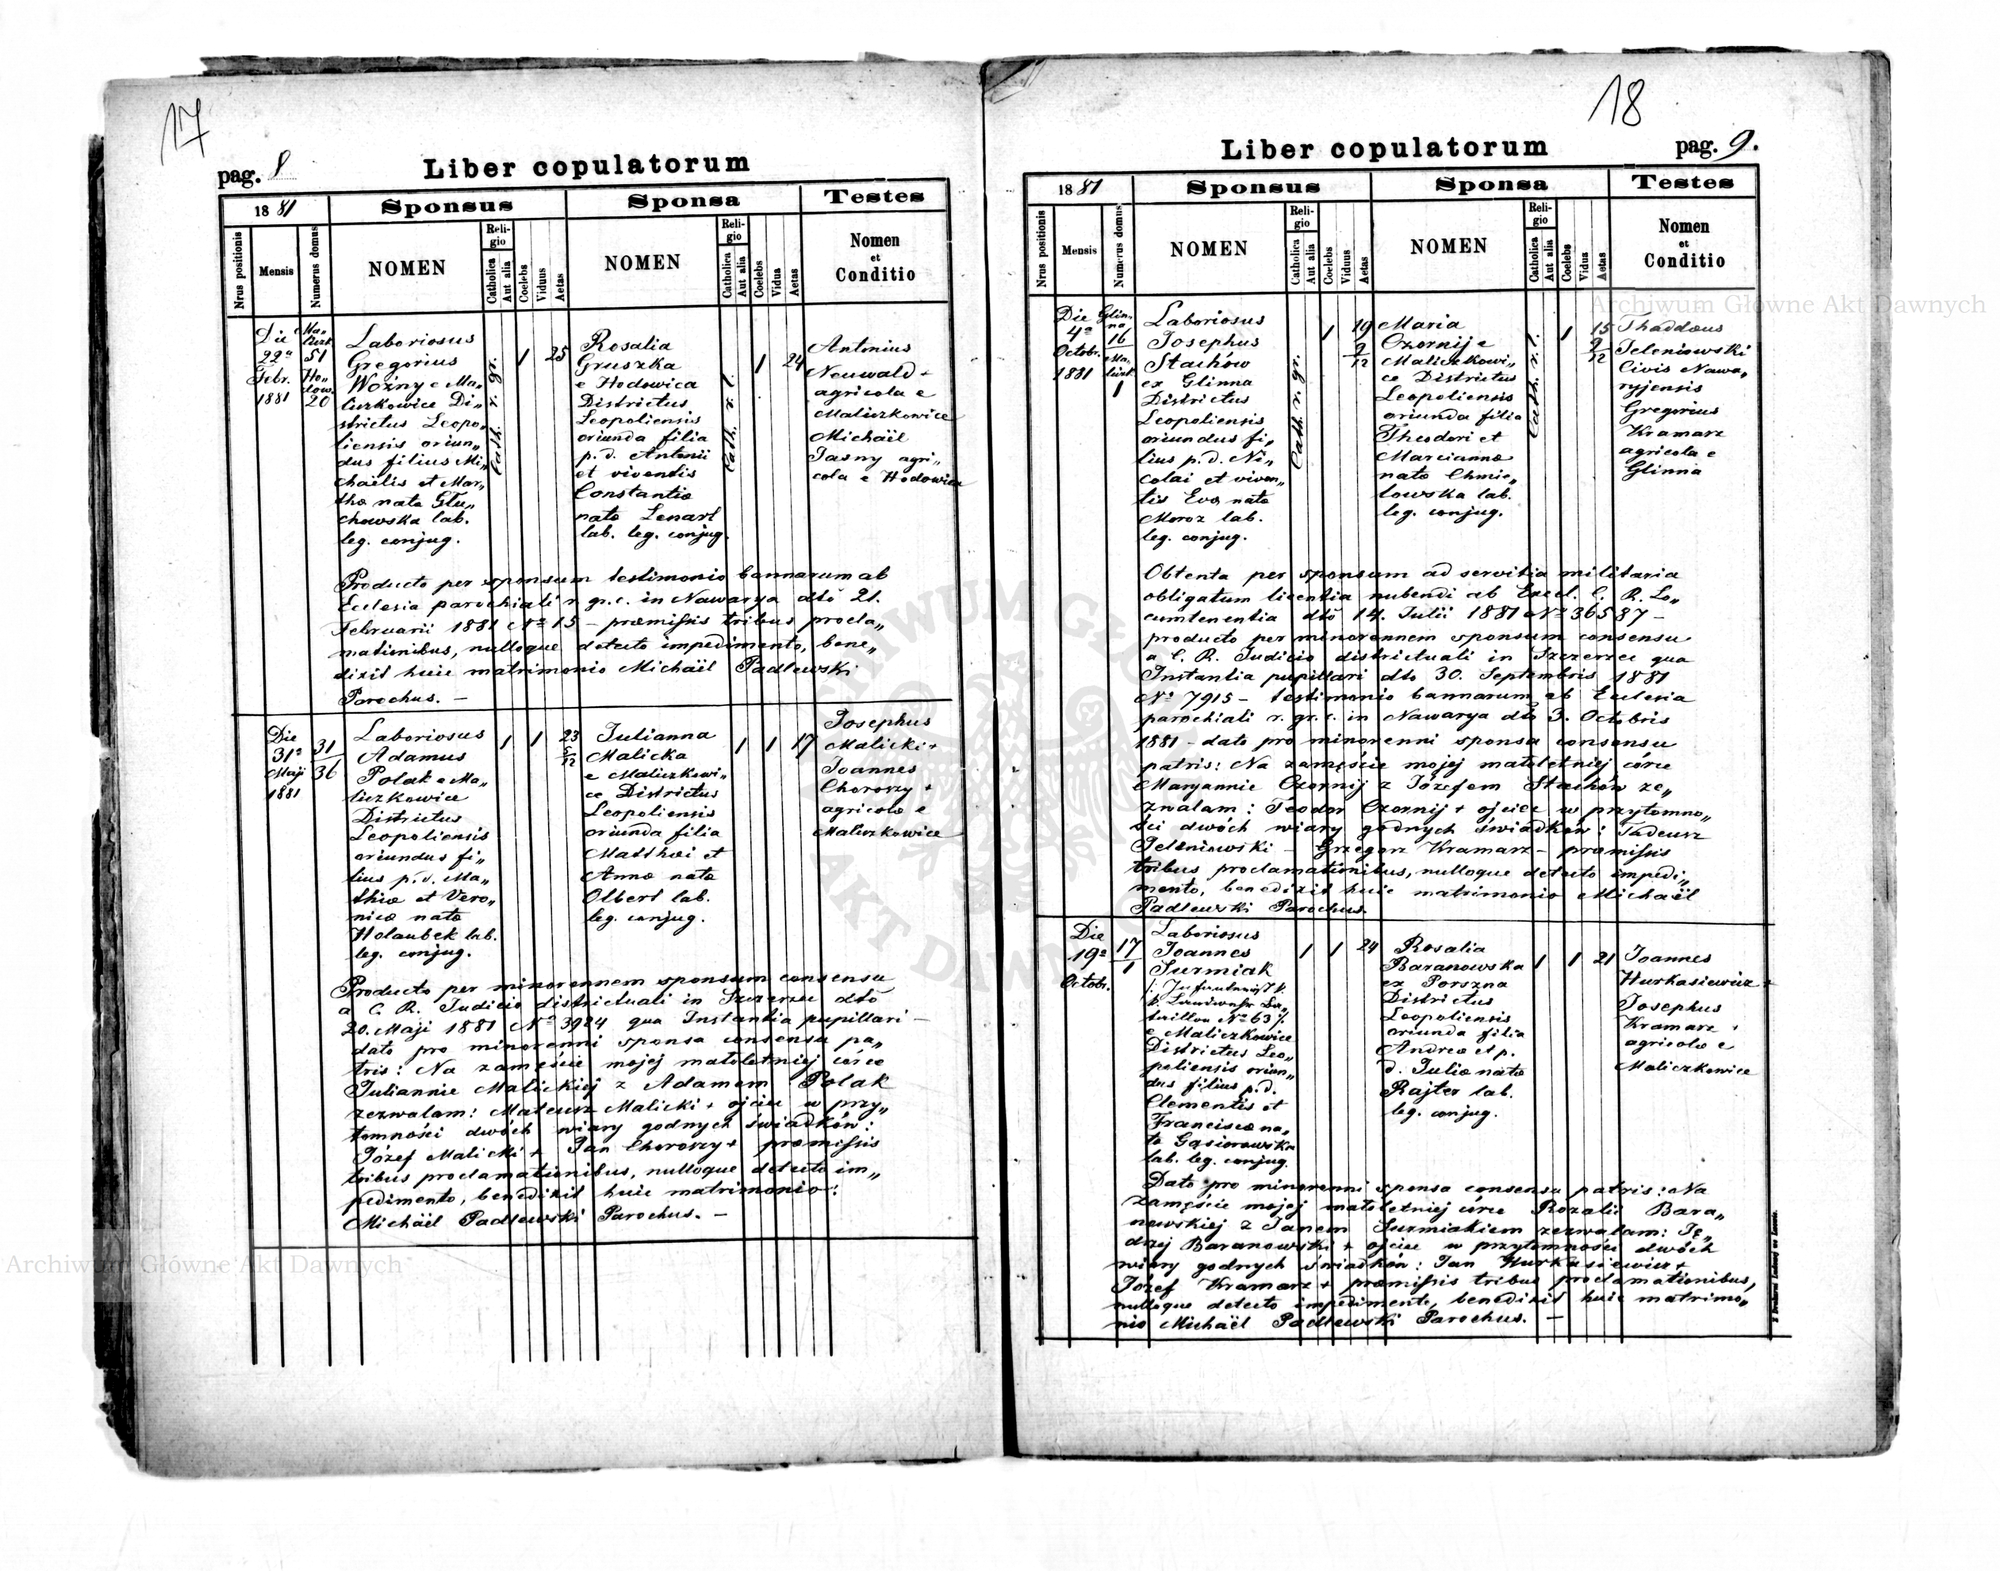 17
pag. 8
Liber copulatorum
1881
Sponsus
Sponsa
Testes
Nrus positionis
Mensis
Numerus domus
NOMEN
Religio
Catholica
Aut alia
Coelebs
Viduus
Aetas
NOMEN
Religio
Catholica
Aut alia
Coelebs
Vidua
Aetas
Nomen
et
Conditio
Die
22a
Febr.
1881
51
Ho„
dow.
20
Laboriosus
Gregorius
Woźny e Ma„
liczkowice Di„
strictus Leopo„
liensis oriun„
dus filius Mi„
chaëlis et Mar„
thæ nata Głu„
chowska lab.
leg. conjug.
Cath. r. gr.
1
25
Rosalia
Gruszka
e Hodowica
Districtus
Leopoliensis
oriunda filia
p. d. Antonii
et viventis
Constantiæ
nata Lenart
lab. leg. conjug.
Cath. r. l.
1
24
Antonius
Neuwald +
agricola e
Maliczkowice
Michaël
Jasny agri„
cola e Hodowica
Producto per sponsum testimonio bannorum ab
Ecclesia parochiali r. gr. c. in Nawarya dtô 21.
Februarii 1881 No 15 – præmissis tribus procla„
mationibus, nulloque detecto impedimento, bene„
dixit huic matrimonio Michaël Padlewski
Parochus. –
Die
31a
Maji
1881
31
36
Laboriosus
Adamus
Polak e Ma„
liczkowice
Districtus
Leopoliensis
oriundus fi„
lius p. d. Ma„
thiæ et Vero„
nicæ nata
Holaubek lab.
leg. conjug.
1
1
23
5/12
Julianna
Malicka
e Maliczkowi„
ce Districtus
Leopoliensis
oriunda filia
Matthæi et
Annæ nata
Olbert lab.
leg. conjug.
1
1
17
Josephus
Malicki +
Joannes
Chorozy +
agricolæ e
Maliczkowice
Producto per minorennem sponsum consensu
a C. R. Judicio districtuali in Szczerzec dtô
20. Maji 1881 No 3924 qua Instantia pupillari –
dato pro minorenni sponsa consensu pa„
tris: Na zamęście mojej małoletniej córce
Juliannie Malickiej z Adamem Polak
zezwalam: Mateusz Malicki + ojciec w przy„
tomności dwóch wiary godnych świadków:
Józef Malicki + Jan Chorozy + præmissis
tribus proclamationibus, nulloque detecto im„
pedimento, benedixit huic matrimonio:
Michaël Padlewski Parochus. –
18
Liber copulatorum
pag. 9.
1881
Sponsus
Sponsa
Testes
Nrus positionis
Mensis
Numerus domus
NOMEN
Religio
Catholica
Aut alia
Coelebs
Viduus
Aetas
NOMEN
Religio
Catholica
Aut alia
Coelebs
Vidua
Aetas
Nomen
et
Conditio
Die
4a
Octobr.
1881
Glin„
na
16
1
Laboriosus
Josephus
Stachów
ex Glinna
Districtus
Leopoliensis
oriundus fi„
lius p. d. Ni„
colai et viven„
tis Evæ nata
Moroz lab.
leg. conjug.
Cath. r. gr.
1
19
9/12
Maria
Czornij e
Maliczkowi„
ce Districtus
Leopoliensis
oriunda filia
Theodori et
Mariannæ
nata Chmie„
lowska lab.
leg. conjug.
Cath. r. l.
1
15
9/12
Thaddæus
Jeleniowski
Civis Nawa„
ryjensis
Gregorius
Kramarz
agricola e
Glinna
Obtenta per sponsum ad servitia militaria
obligatum licentia nubendi ab Excel. C. R. Lo„
cumtenentia dtô 14. Julii 1881 No 36587 –
producto per minorennem sponsum consensu
a C. R. Judicio districtuali in Szczerzec qua
Instantia pupillari dto 30. Septembris 1881
No 7915 – testimonio bannorum ab Ecclesia
parochiali r. gr. c. in Nawarya dtô 3. Octobris
1881 – dato pro minorenni sponsa consensu
patris: Na zamęście mojej małoletniej córce
Maryannie Czornij z Józefem Stachów ze„
zwalam: Teodor Czornij + ojciec w przytomno„
ści dwóch wiary godnych świadków: Tadeusz
Jeleniowski – Grzegorz Kramarz – præmissis
tribus proclamationibus, nulloque detecto impedi„
mento, benedixit huic matrimonio Michaël
Padlewski Parochus.
Die
19a
Octobr.
17
1
Laboriosus
Joannes
Surmiak
No 63
e Maliczkowice
Districtus Leo„
poliensis oriun„
dus filius p. d.
Clementis et
Franciscæ na„
ta Gąsiorowska
lab. leg. conjug.
1
1
24
Rosalia
Baranowska
ex Porszna
Districtus
Leopoliensis
oriunda filia
Andreæ et p.
d. Juliæ nata
Rajter lab.
leg. conjug.
1
1
21
Joannes
Hurkasiewicz +
Josephus
Kramarz +
agricolæ e
Maliczkowice
Dato pro minorenni sponsa consensu patris: Na
zamęście mojej małoletniej córce Rozalii Bara„
nowskiej z Janem Surmiakiem zezwalam: Ję„
drzej Baranowski + ojciec w przytomności dwóch
wiary godnych świadków: Jan Hurkasiewicz +
Józef Kramarz + præmissis tribus proclamationibus,
nulloque detecto impedimento, benedixit huic matrimo„
nio Michaël Padlewski Parochus. –
Archiwum Główne Akt Dawnych
Archiwum Główne Akt Dawnych
ARCHIWUM GŁÓWNE
AKT DAWNYCH